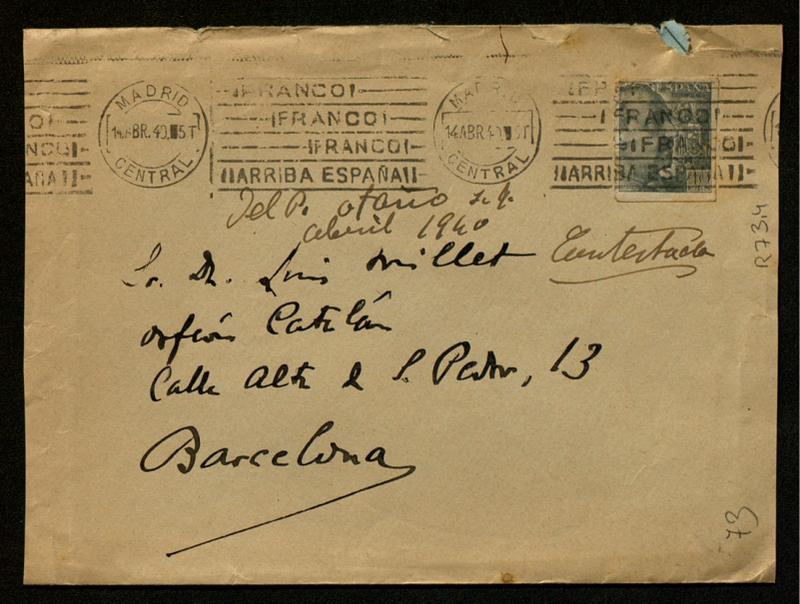 MADRID
14 ABR. 40
CENTRAL
¡FRANCO!
¡FRANCO!
¡FRANCO!
¡¡ARRIBA ESPAÑA!!
MADRID
14 ABR. 40
CENTRAL
ESPAÑA
¡FRANCO!
¡FRANCO!
¡¡ARRIBA ESPAÑA!!
Del P. Otaño S. J.
abril 1940
Contestada
Sr. Dn. Luis Millet
Orfeón Catalán
Calle Alta de S. Pedro, 13
Barcelona
R73.4
73